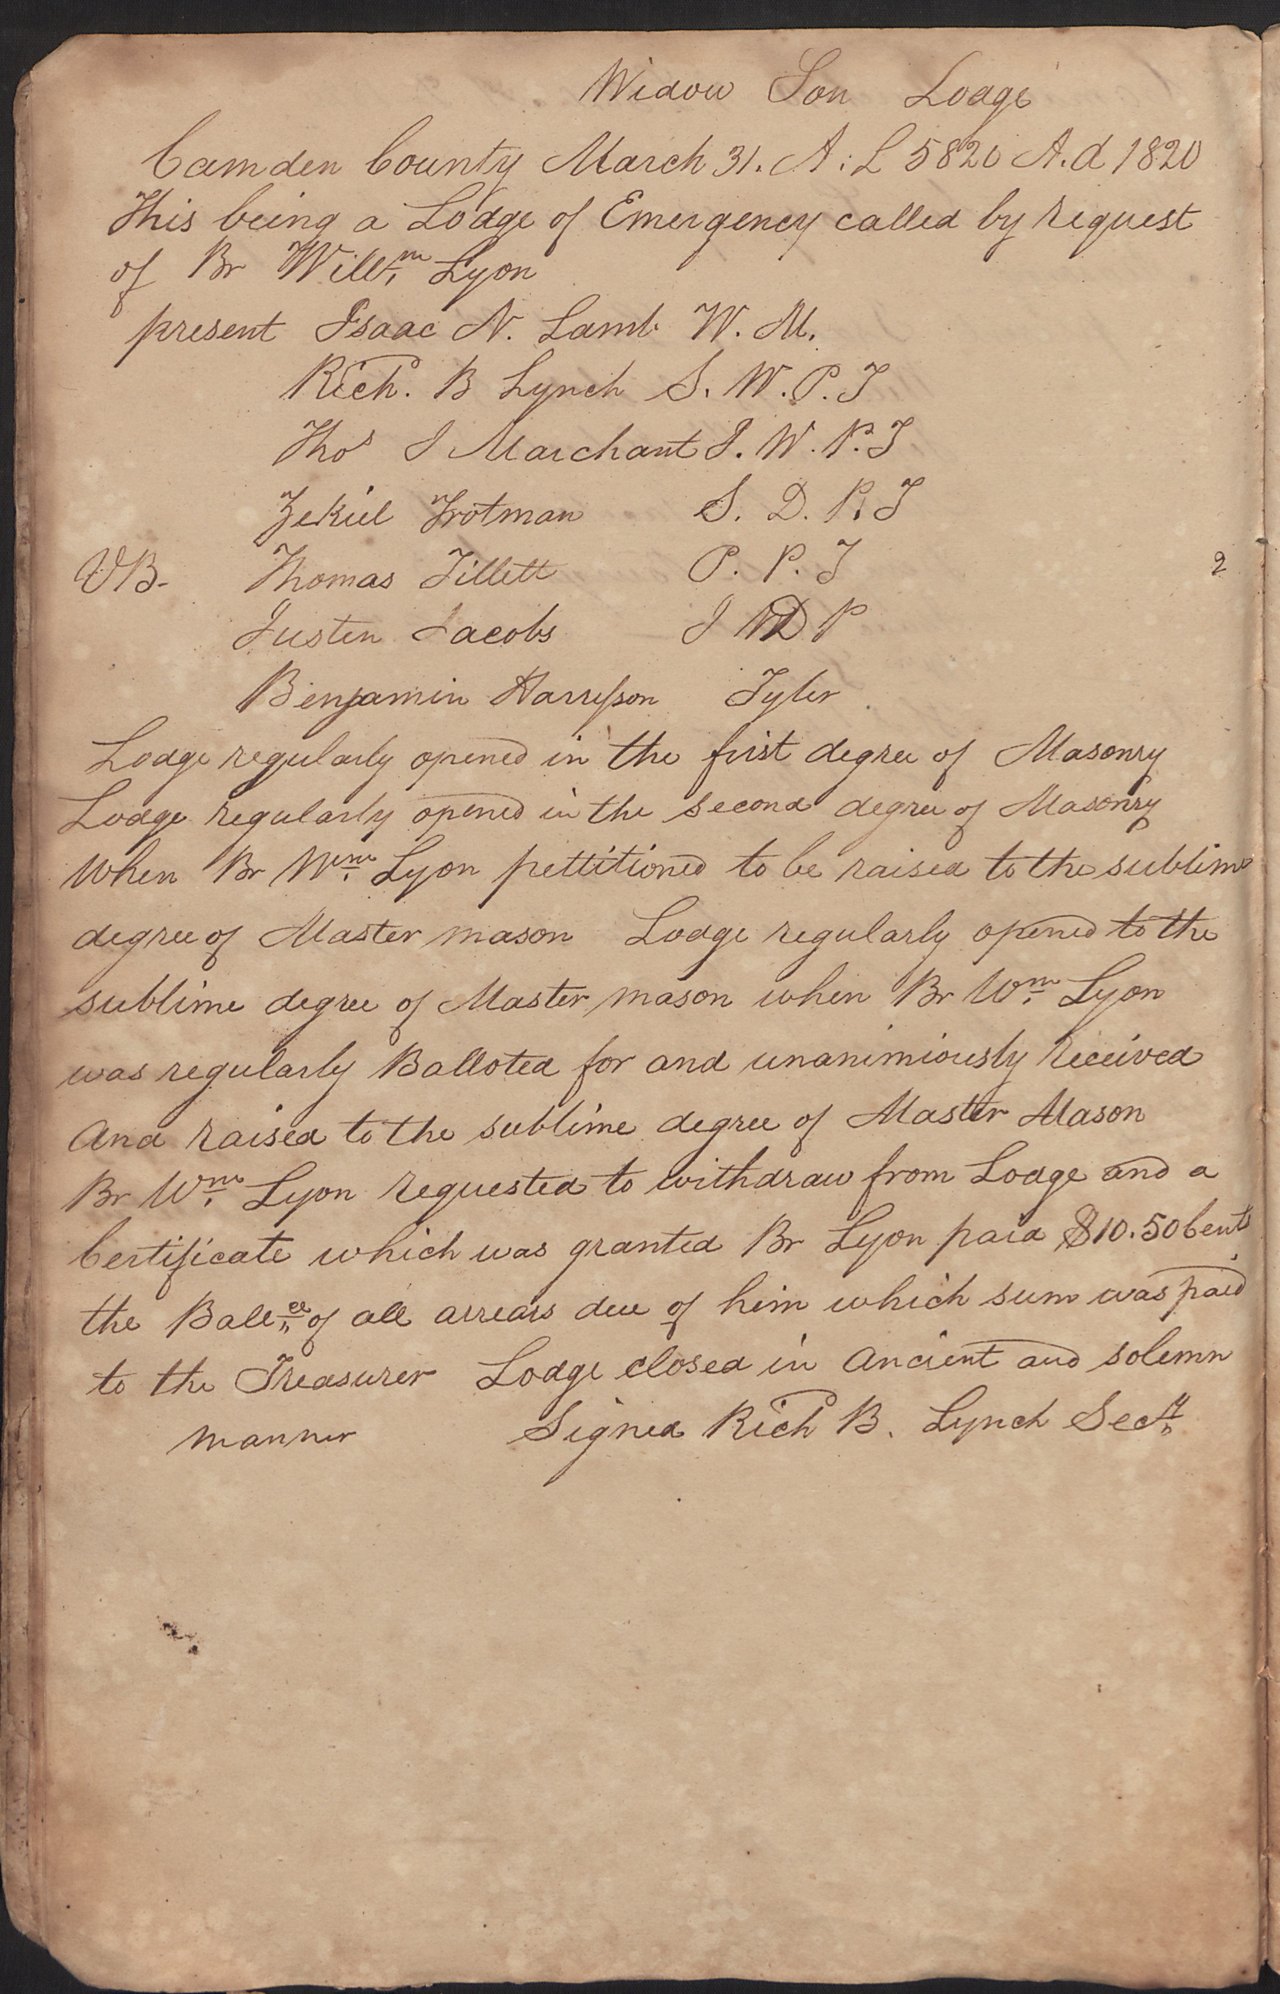 Widow Son Lodge
Camden County March 31. A:L 5820 A.d 1820
This being a Lodge of Emergency called by request
of Br Willm Lyon
present Isaac N. Lamb W. M.
Richd. B Lynch S. W. P. T
Thos J Marchant J. W. P. T
Zekiel Trotman S. D. P. T
VB- Thomas Tillett P. P. T 2
Justen Jacobs J D P
Benjamin Harrisson Tyler
Lodge regularly opened in the first degree of Masonry
Lodge regularly opened in the second degree of Masonry
When Br Wm Lyon pettitioned to be raised to the sublime
degree of Master mason Lodge regularly opened to the
sublime degree of Master mason when Br Wm Lyon
was regularly Balloted for and unanimiously received
And raised to the sublime degree of Master Mason
Br Wm Lyon requested to withdraw from Lodge and a
Certificate which was granted Br Lyon paid $10.50 Cents
the Balce of all arrears due of him which sum was paid
to the Treasurer Lodge closed in Ancient and solemn
manner Signed Richd B. Lynch Secty